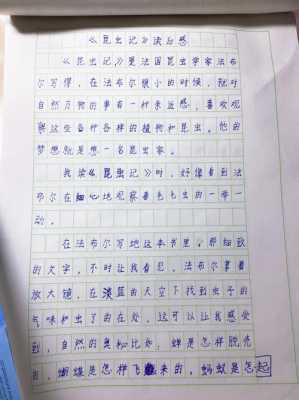 《昆虫记》读后感
《昆虫记》是法国昆虫学家法布
尔写得，在法布尔很小的时候，就对
自然万物的事有一种亲近感，喜欢观
察这些各种各样的植物和昆虫。他的
梦想就是想一名昆虫家。
我读《昆虫记》时，好像看到法
布尔在细心地观察着毛毛虫的一举一
动。
在法布尔写地这本书里，那细致
的文字，不时让我看见，法布尔拿着
放大镜，在淡蓝的天空下找到虫子的
气味和出了的在处，这可以让我感受
到，自然的奥秘比如：蝉是怎样脱壳
的，蝴蝶是怎样飞来的，蚂蚁是怎起